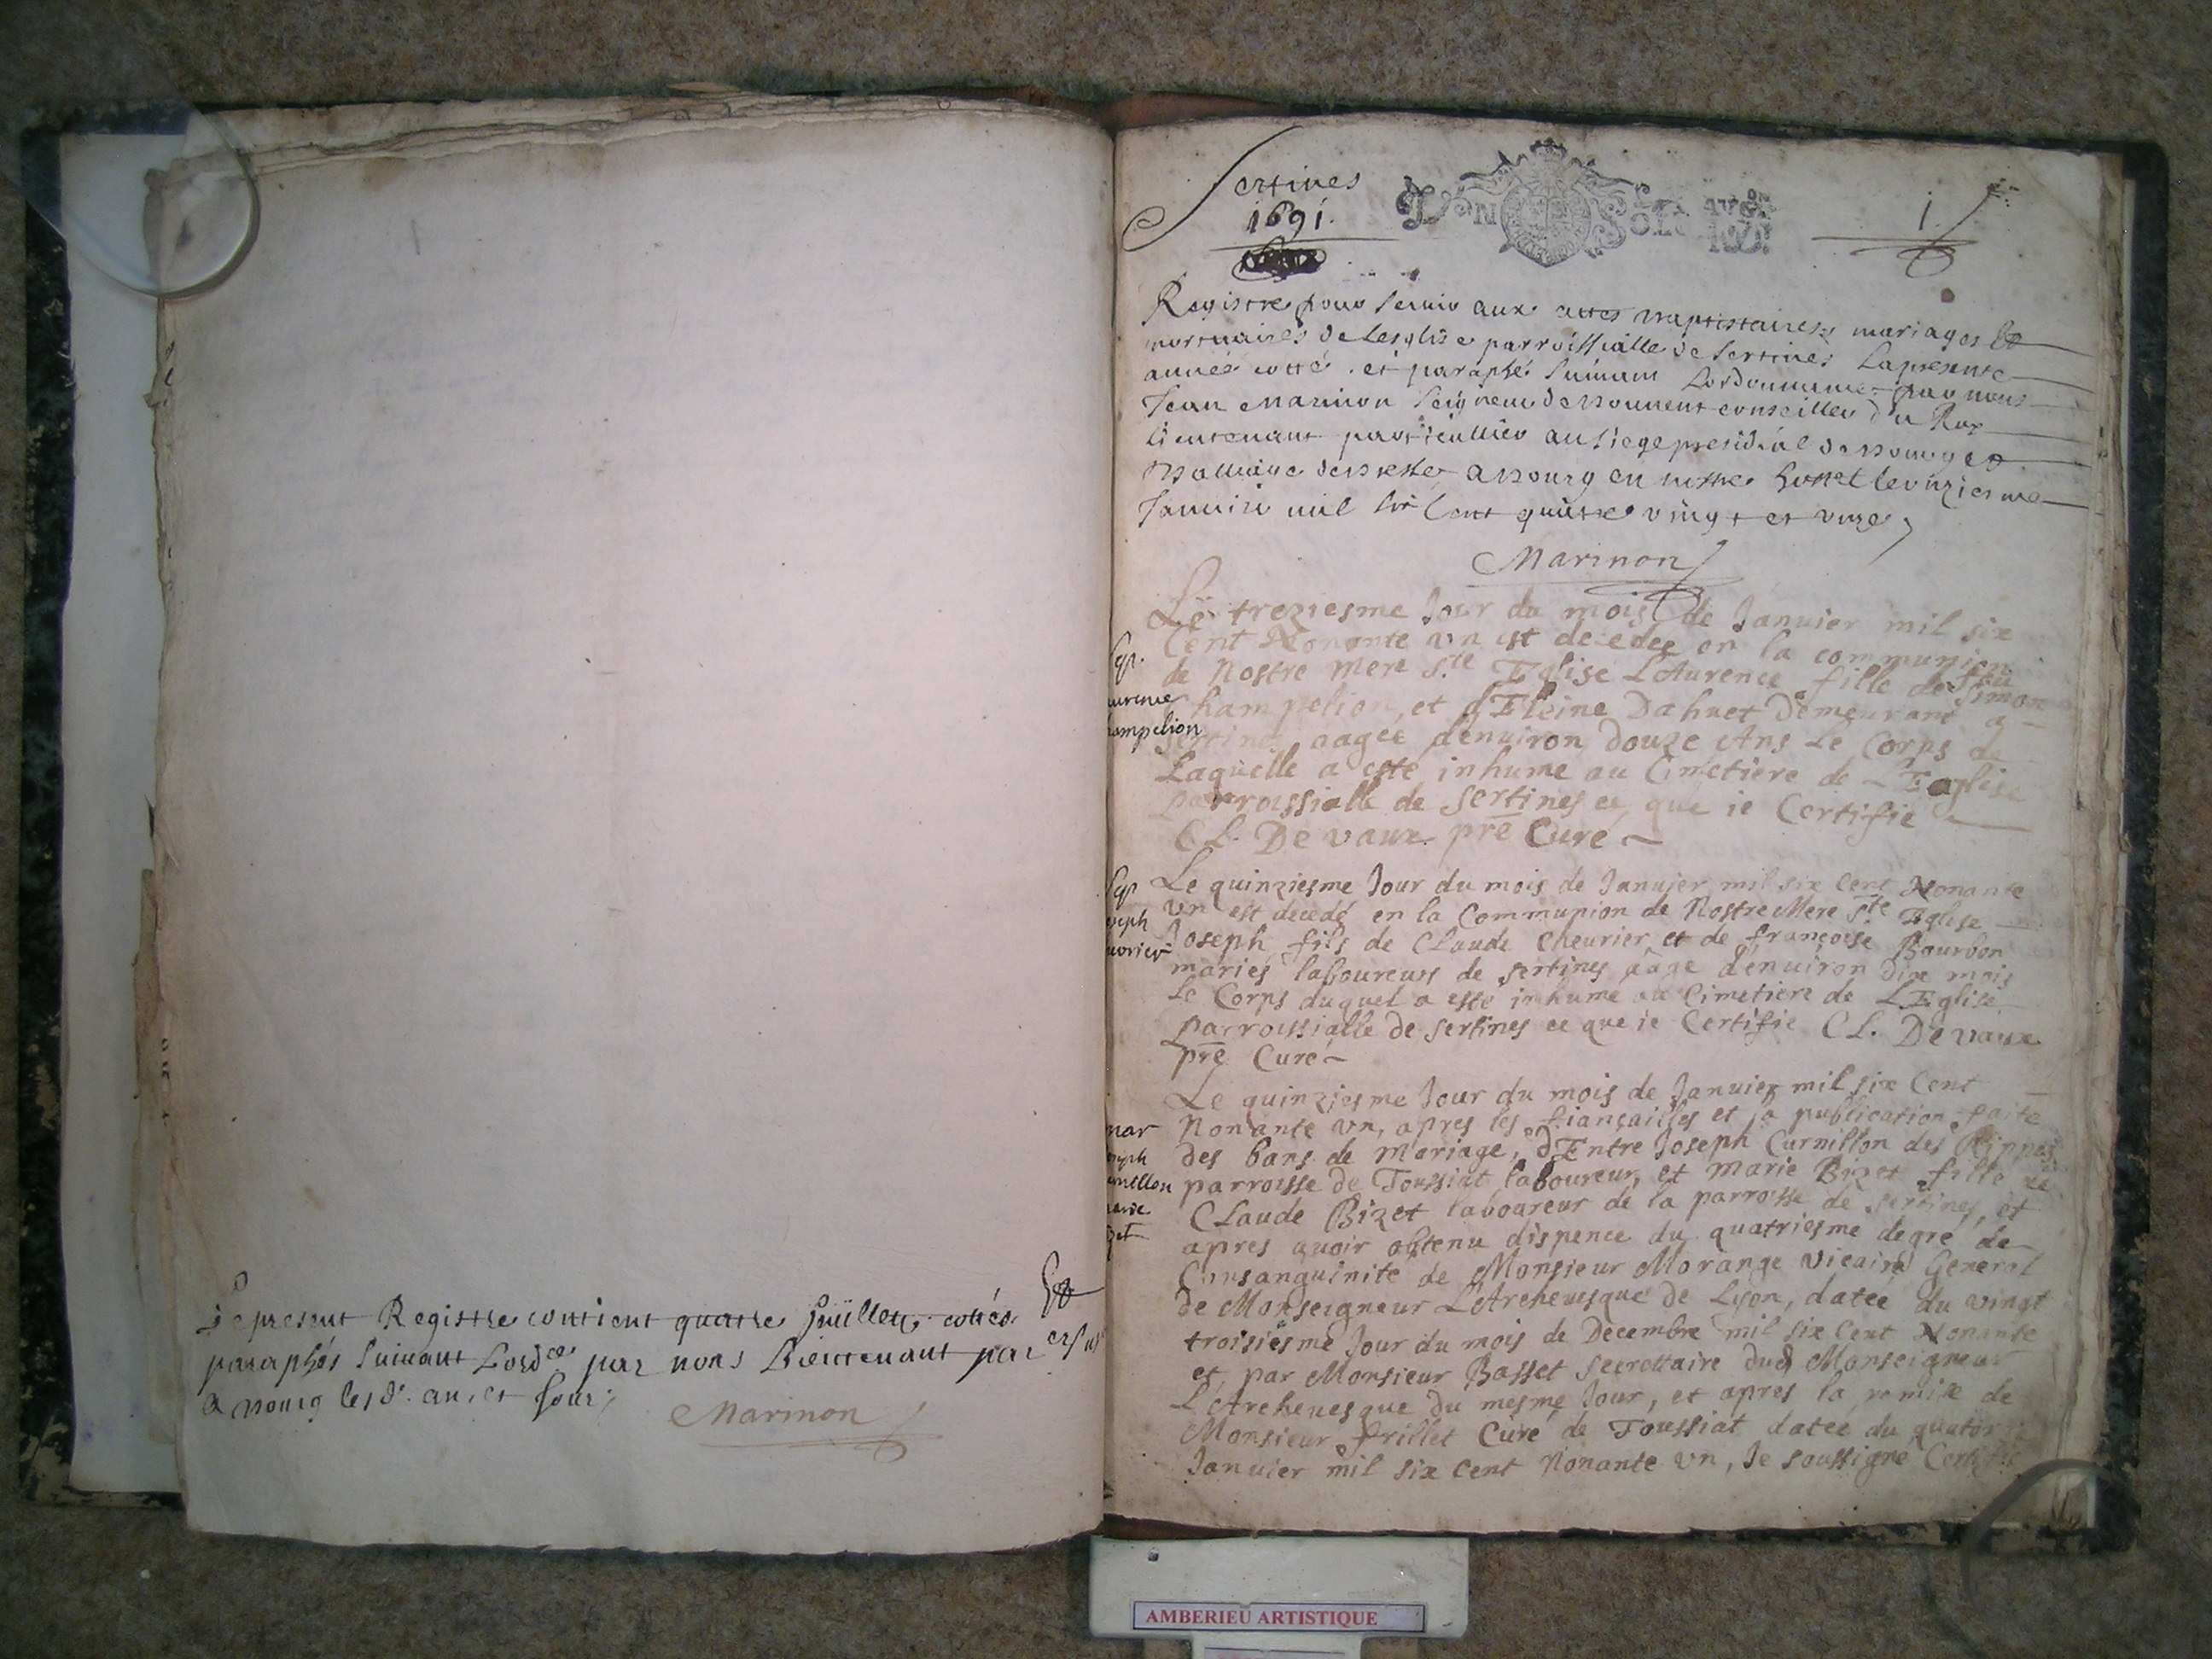 Le present Registre contient quatre fuillets cottés Et
paraphés suivant Lordce par nous Lieutenant par
a Bourg lesd. an, et Jour;
Marinon
Sertines
1691.
1
Registre pour servir aux actes Baptistaires, mariages Et
mortuaires de Lesglise parroissialle de Sertines La presente
année cotté et paraphé suivant Lordonnance par nous
Jean Marinon Seigneur de conseiller du Roy
Lieutenant particullier au siege presidial de Bourg et
Balliage de Bresse a Bourg en nostre hostel le unziesme
Janvier mil six Cent quatre vingt et unze,
Marinon
Le treziesme Jour du mois de Januier mil six
Cent Nonante vn est decedee en la communion
de Nostre Mere Ste Eglise LAurence fille de feu Simon
Champelion, et dEleine Dahuet demeurant a
Sertines aagee denuiron douze Ans Le Corps de
Laquelle a esté inhume au Cimetiere de L'Eglise
parroissialle de Sertines ce que ie Certifie
CL. De vaux pre Curé
Sep.
aurence
hampelion
Le quinziesme Jour du mois de Januier mil six cent Nonante
vn est decedé en la Communion de Nostre Mere Ste Eglise
Joseph fils de Claude Cheurier et de françoise Bourbon
mariés laboureurs de Sertines aage denuiron dix mois
Le Corps duquel a esté inhume au Cimetiere de LEglise
parroissialle de Sertines ce que ie Certifie CL. De vaux
pre Curé
Sep
oseph
eurier
Le quinziesme Jour du mois de Januier mil six Cent
Nonante vn, apres les fiançailles et la publication faite
des bans de Mariage, dEntre Joseph Curnillon des Rippes
parroisse de Toussiat laboureur, et Marie Bizet fille de
CLaude Bizet laboureur de la parroisse de Sertines, et
apres auoir obtenu dispence du quatriesme degré de
Consanguinité de Monsieur Morange Vicaire General
de Monseigneur L'Archeuesque de Lyon, datee du vingt
troisiesme Jour du mois de Decembre mil six Cent Nonante
et par Monsieur Basset Secrettaire dud Monseigneur
L'Archeuesque du mesme Jour, et apres la remise de
Monsieur frillet Curé de Toussiat datee du quator
Januier mil six Cent Nonante vn, Je soussigné Certifie
mar
oseph
urnillon
marie
izet
AMBERIEU ARTISTIQUE